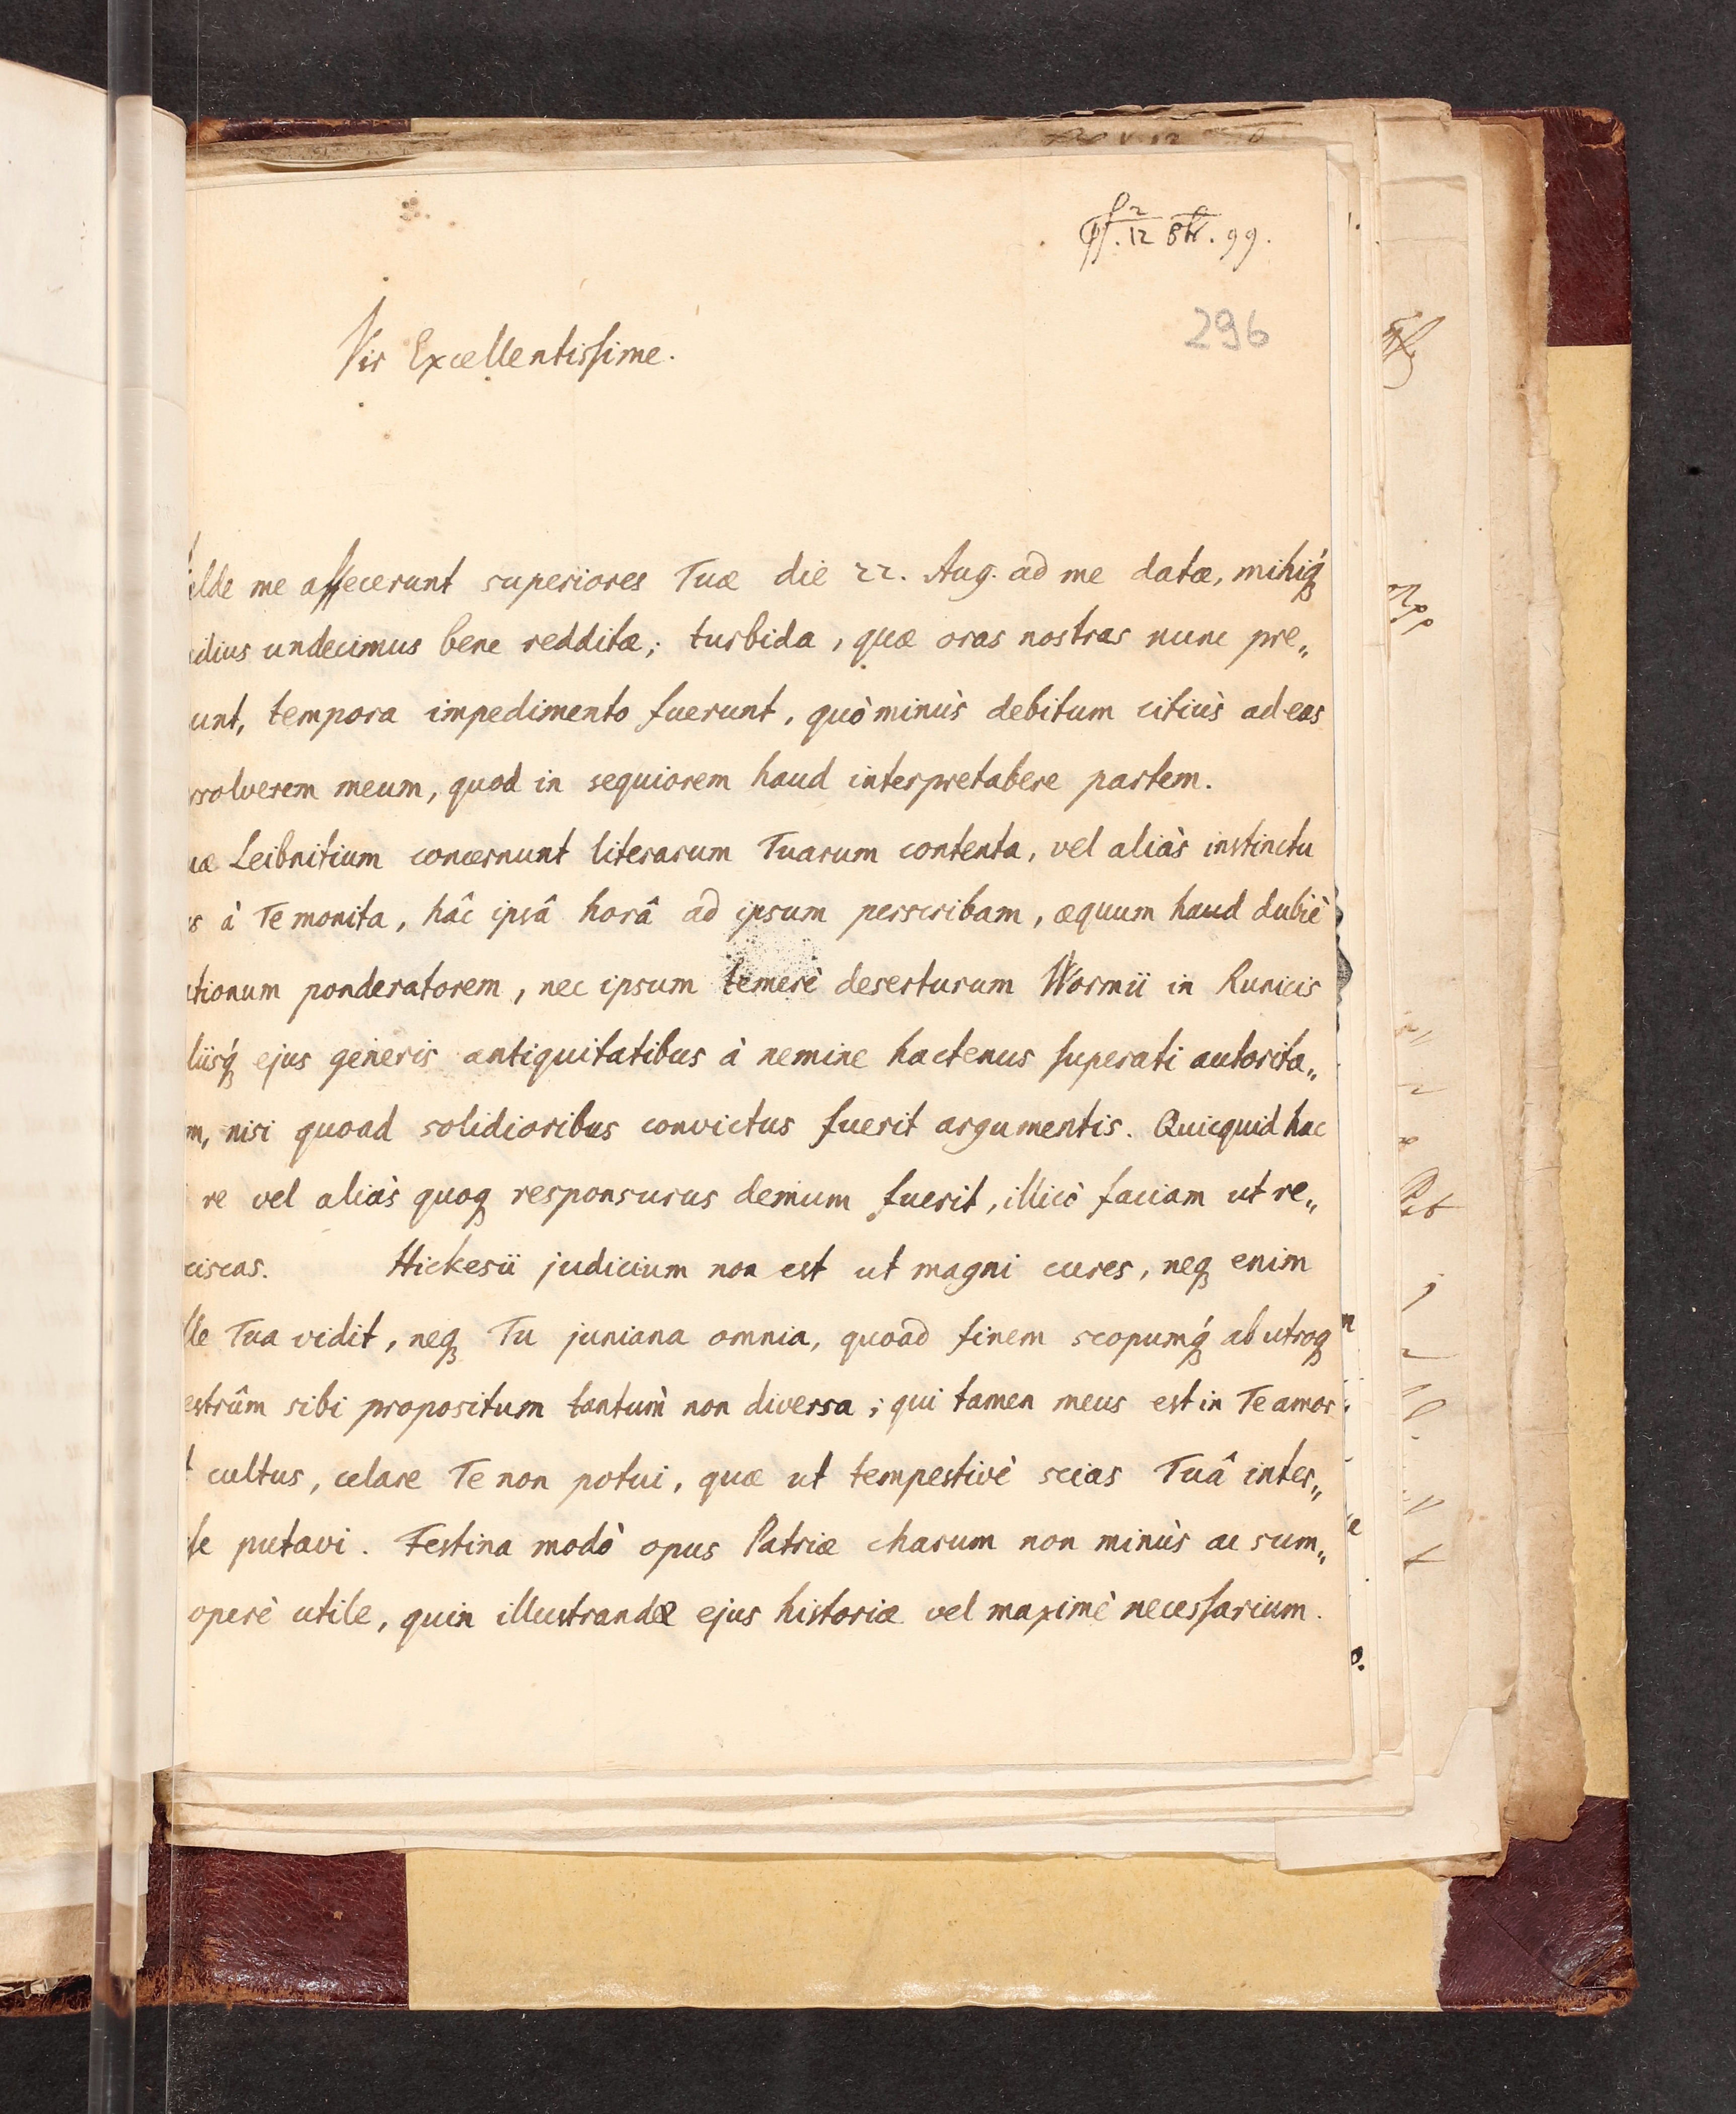 12 8br. 99.
296
Vir Excellentissime.
alde me affecerunt superiores Tuæ die 22. Aug. ad me datæ, mihiq́ꝫ
idius undecimus bene redditæ; turbida, quæ oras nostras nunc pre„
unt, tempora impedimento fuerunt, quò minùs debitum citiùs ad eas
rsolverem meum, quod in sequiorem haud interpretabere partem.
uæ Leibnitium concernunt literarum Tuarum contenta, vel aliàs instinctu
s à Te monita, hâc ipsâ horâ ad ipsum perscribam, æquum haud dubiè
ationum ponderatorem, nec ipsum temerè deserturum Wormii in Runicis
liisq́ꝫ ejus generis antiquitatibus à nemine hactenus superati autorita„
m, nisi quoad solidioribus convictus fuerit argumentis. Quicquid hac
re vel aliàs quoqꝫ responsurus demum fuerit, illicò faciam ut re„
ciscas. Hickesii judicium non est ut magni cures, neqꝫ enim
lle Tua vidit, neqꝫ Tu juniana omnia, quoad finem scopumq́ꝫ ab utroqꝫ
estrûm sibi propositum tantùm non diversa; qui tamen meus est in Te amor
t cultus, celare Te non potui, quæ ut tempestivè scias Tuâ inter„
sse putavi. Festina modò opus Patriæ charum non minùs ac sum„
operè utile, quin illustrandæ ejus historiæ vel maximè necessarium.